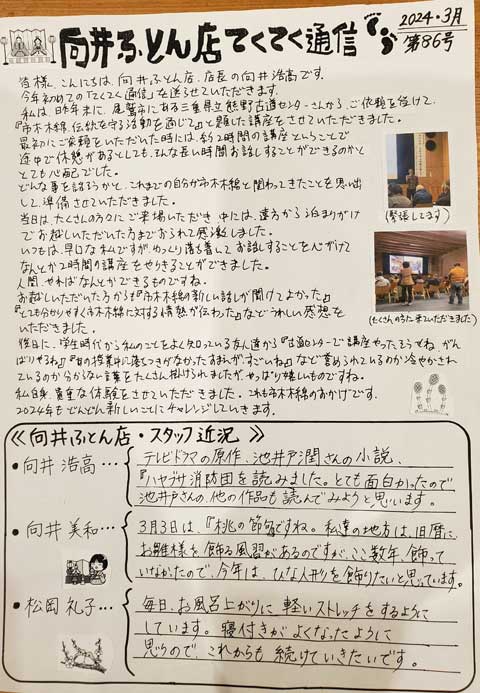 向井ふとん店てくてく通信
2024・3月
第86号
皆様、こんにちは。向井ふとん店、店長の向井浩高です。
今年初めての『てくてく通信』を送らせていただきます。
私は、昨年末に、尾鷲市にある三重県立熊野古道センターさんから、ご依頼を受けて、
『市木木綿、伝統を守る活動を通じて』と題した講座をさせていただきました。
最初にご依頼をいただいた時には、約2時間の講座ということで
途中で休憩があるとしても、そんな長い時間お話しすることができるのかと
とても心配でした。
どんな事を話そうかと、これまでの自分が市木木綿と関わってきたことを思い出
して、準備させていただきました。
当日は、たくさんの方々にご来場いただき、中には、遠方から泊まりがけ
でお越しいただいた方までおられて感激しました。
いつもは、早口な私ですが、ゆっくり落ち着いてお話しすることを心がけて
なんとか2時間の講座をやりきることができました。
人間、やればなんとかできるものですね。
お越しいただいた方からも『市木木綿の新しい話しが聞けてよかった』
『とても分かりやすく市木木綿に対する情熱が伝わった』などうれしい感想を
いただきました。
後日に、学生時代から私のことをよく知っている友人達から『古道センターで講座やったそうやね、がん
ばりやるね』『昔の授業中に落ちつきがなかったおまえが、すごいね』などと褒められているのか冷やかされ
ているのか分からない言葉をたくさん掛けられましたが、やっぱり嬉しいものですね。
私自身、貴重な体験をさせていただきました。これも市木木綿のおかげです。
2024年もどんどん新しいことにチャレンジしていきます。
(緊張してます)
(たくさんの方に来ていただきました)
≪向井ふとん店・スタッフ近況≫
・向井 浩高…
テレビドラマの原作、池井戸潤さんの小説、
『ハヤブサ消防団を読みました。とても面白かったので
池井戸さんの、他の作品も読んでみようと思います。
・向井 美和…
3月3日は、『桃の節句ですね。私達の地方は、旧暦に、
お雛様を飾る風習があるのですが、ここ数年、飾って
いなかったので、今年は、ひな人形を飾りたいと思っています。
・松岡 礼子…
毎日、お風呂上がりに軽いストレッチをするように
しています。寝付きがよくなったように
思うので、これからも続けていきたいです。